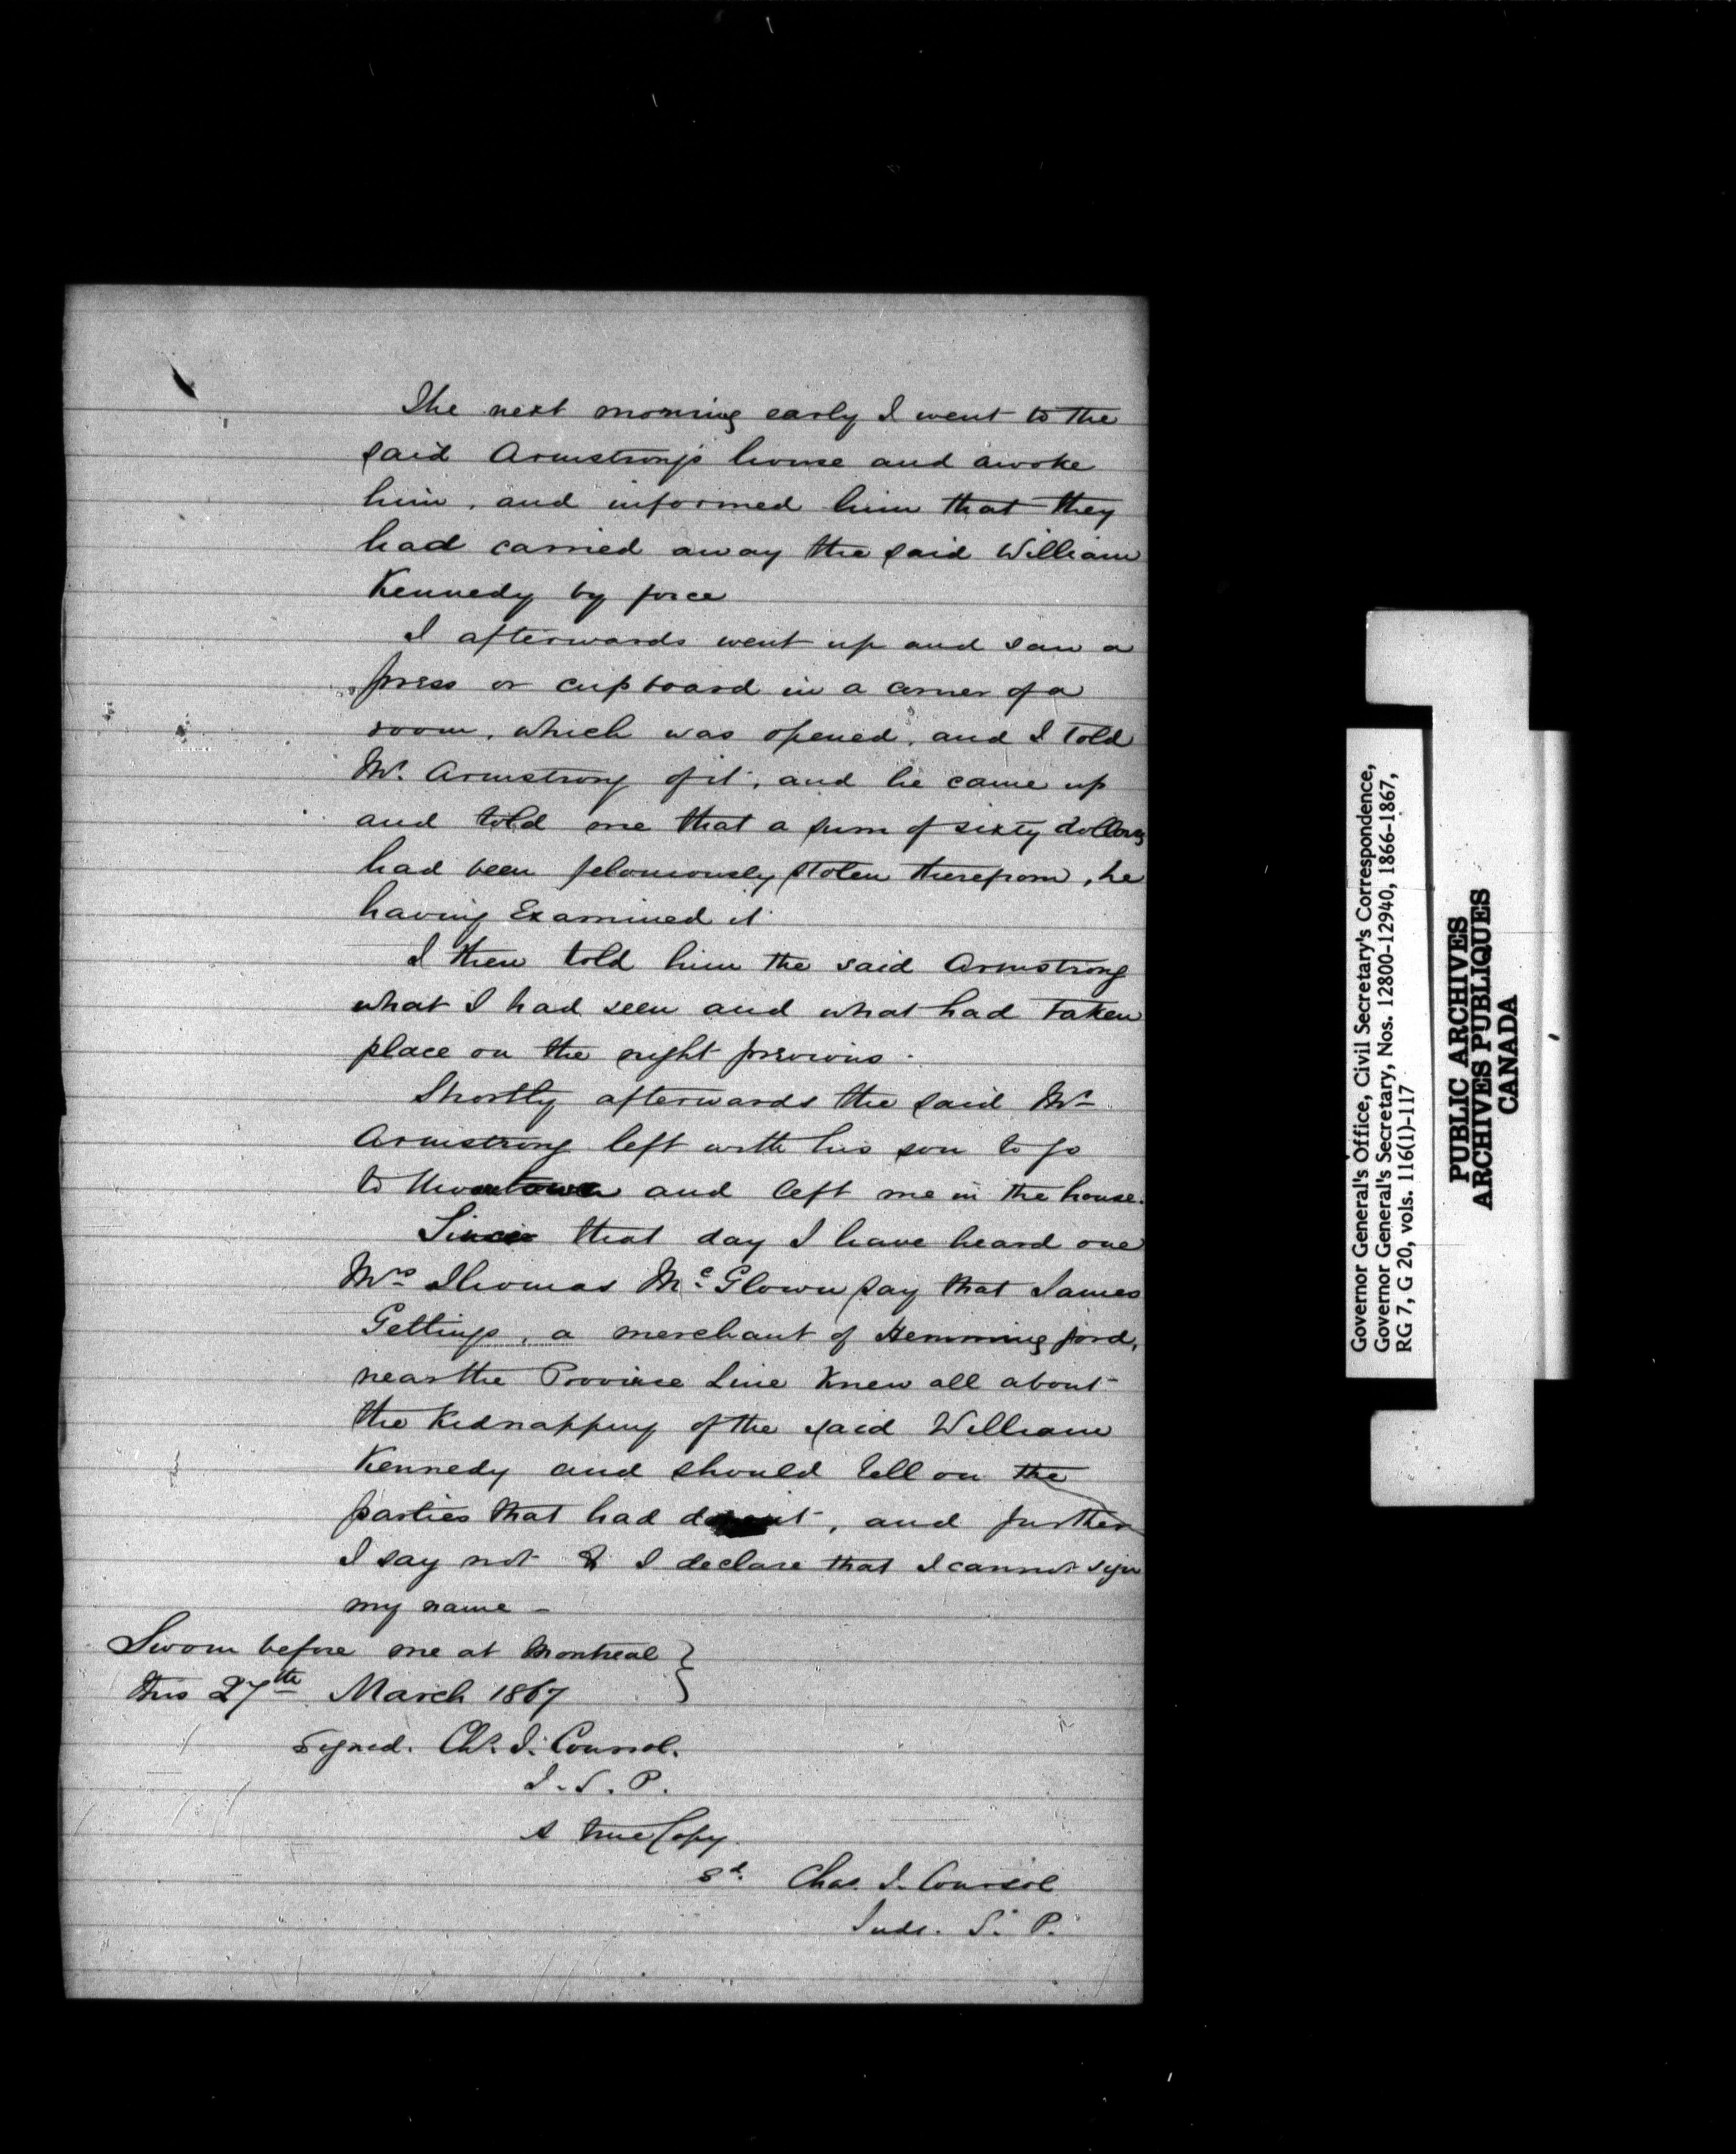 The next morning early I went to the
said Armstrong's house and awoke
him, and informed him that they
had carried away the said William
Kennedy by force
I afterwards went up and saw a
press or cupboard in a corner of a
room, which was opened, and I told
Mr. Armstrong of it, and he came up
and told me that a sum of sixty dollars
had been feloniously stolen therefrom, he
having Examined it
I then told him the said Armstrong
what I had seen and what had taken
place on the night previous.
Shortly afterwards the said Mr
Armstrong left with his son to go
to and left me in the house.
Since that day I have heard one
Mrs Thomas McGlown say that James
Gettings, a merchant of Hemmingford,
near the Province Line Knew all about
the Kidnapping of the said William
Kennedy and should tell on the
parties that had done it, and further
I say not & I declare that I cannot sign
my name -
Sworn before me at Montreal }
this 27th March 1867
Signed. Chs. J. Coursol.
J. S. P.
A true Copy.
Sd. Chas. J. Coursol
Judge. S. P.
Governor General's Office, Civil Secretary's Correspondence,
Governor General's Secretary, Nos. 12800-12940, 1866-1867,
RG 7, G 20, vols. 116(1)-117
PUBLIC ARCHIVES
ARCHIVES PUBLIQUES
CANADA